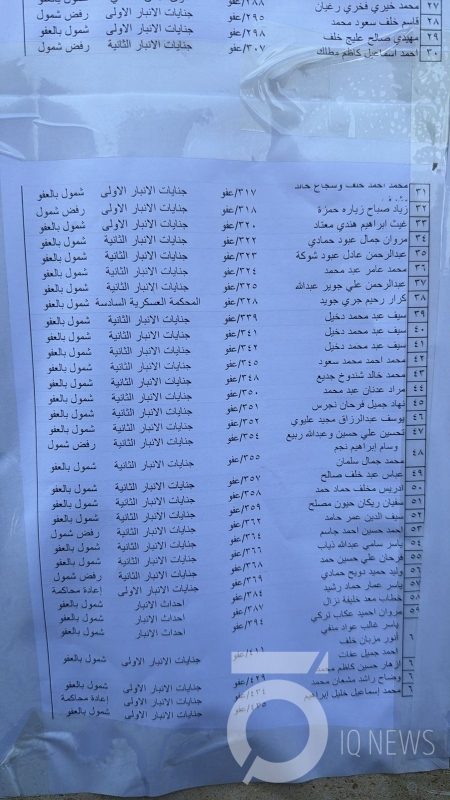 ٢٧ محمد خيري فخري رغيان ٢٨٨/عفو جنايات الانبار الاولى شمول بالعفو
٢٨ قاسم خلف سعود محمد ٢٩٥/عفو جنايات الانبار الاولى شمول بالعفو
٢٩ مهيدي صالح عليج خلف ٢٩٨/عفو جنايات الانبار الاولى شمول بالعفو
٣٠ احمد اسماعيل كاظم مطلك ٣٠٧/عفو جنايات الانبار الثانية رفض شمول
٣١ محمد احمد خلف ٣١٧/عفو جنايات الانبار الاولى شمول بالعفو
٣٢ زياد صباح زياره حمزة ٣١٨/عفو جنايات الانبار الاولى رفض شمول
٣٣ غيث ابراهيم هندي معتاد ٣٢٠/عفو جنايات الانبار الاولى شمول بالعفو
٣٤ مروان جمال عبود حمادي ٣٢٢/عفو جنايات الانبار الثانية شمول بالعفو
٣٥ عبدالرحمن عادل عبود شوكة ٣٢٣/عفو جنايات الانبار الثانية شمول بالعفو
٣٦ محمد عامر عبد محمد ٣٢٤/عفو جنايات الانبار الثانية شمول بالعفو
٣٧ عبدالرحمن علي جوير عبدالله ٣٢٥/عفو جنايات الانبار الثانية شمول بالعفو
٣٨ كرار رحيم جري جويد ٣٢٨/عفو المحكمة العسكرية السادسة شمول بالعفو
٣٩ سيف عبد محمد دخيل ٣٣٩/عفو جنايات الانبار الثانية شمول بالعفو
٤٠ سيف عبد محمد دخيل ٣٤١/عفو جنايات الانبار الثانية شمول بالعفو
٤١ سيف عبد محمد دخيل ٣٤٢/عفو جنايات الانبار الثانية شمول بالعفو
٤٢ محمد احمد محمد سعود ٣٤٥/عفو جنايات الانبار الثانية شمول بالعفو
٤٣ محمد خالد شندوخ جديع ٣٤٨/عفو جنايات الانبار الثانية شمول بالعفو
٤٤ مراد عدنان عبد محمد ٣٥٠/عفو جنايات الانبار الثانية شمول بالعفو
٤٥ نهاد جميل فرحان نجرس ٣٥١/عفو جنايات الانبار الثانية شمول بالعفو
٤٦ يوسف عبدالرزاق مجيد عليوي ٣٥٢/عفو جنايات الانبار الثانية شمول بالعفو
٤٧ تحسين علي حسين وعبدالله ربيع ٣٥٤/عفو جنايات الانبار الثانية رفض شمول
٤٨ وسام ابراهيم نجم
محمد جمال سلمان ٣٥٥/عفو جنايات الانبار الثانية شمول بالعفو
٤٩ عباس عبد خلف صالح ٣٥٧/عفو جنايات الانبار الثانية شمول بالعفو
٥٠ ادريس مخلف حماد حمد ٣٥٨/عفو جنايات الانبار الثانية شمول بالعفو
٥١ سفيان ريكان حيون مصلح ٣٥٩/عفو جنايات الانبار الثانية شمول بالعفو
٥٢ سيف الدين عمر حامد ٣٦٢/عفو جنايات الانبار الثانية شمول بالعفو
٥٣ احمد حسين احمد جاسم ٣٦٤/عفو جنايات الانبار الثانية رفض شمول
٥٤ ياسر سامي عبدالله ذياب ٣٦٦/عفو جنايات الانبار الثانية شمول بالعفو
٥٥ فرحان علي حسين حمد ٣٦٨/عفو جنايات الانبار الثانية شمول بالعفو
٥٦ وليد حميد دويح حمادي ٣٦٩/عفو جنايات الانبار الثانية رفض شمول
٥٧ ياسر عمار حماد رشيد ٣٨٤/عفو جنايات الانبار الاولى إعادة محاكمة
٥٨ خطاب معد خليفة نزال ٣٨٧/عفو احداث الانبار شمول بالعفو
٥٩ مروان احميد عكاب تركي ٣٩٤/عفو احداث الانبار شمول بالعفو
ياسر غالب عواد منفي احداث الانبار شمول بالعفو
٦ انور مزبان خلف
احمد جميل عفات ٤١١/عفو جنايات الانبار الاولى شمول بالعفو
٦ ازهار حسين كاظم محمد ٤٢٩/عفو جنايات الانبار الاولى شمول بالعفو
٦ وضاح راشد مشعان محمد ٤٣٤/عفو جنايات الانبار الاولى إعادة محاكمة
٦ محمد إسماعيل خليل إبراهيم ٤٣٥/عفو جنايات الانبار الاولى شمول بالعفو
IQ NEWS